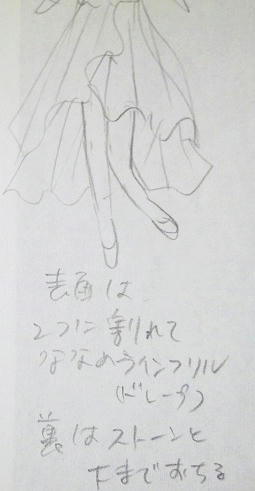 表面は
2つに割れて
ななめラインフリル
(ドレープ)
裏はストーンと
下まで落ちる